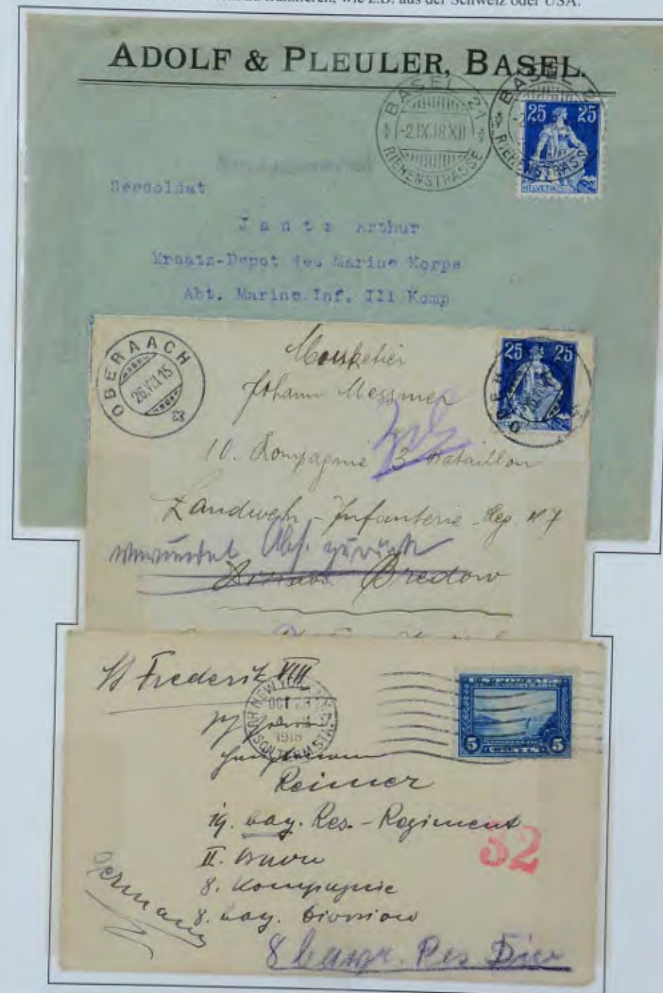 wie z.B. aus der Schweiz oder USA.
ADOLF & PLEULER, BASEL.
BASEL 21
-2.IX.18 XII
RIEHENSTRASSE
BASEL 21
RIEHENSTRASSE
25 25
HELVETIA
Seesoldat
Jantz Arthur
Ersatz-Depot des Marine Korps
Abt. Marine Inf. III Komp
OBERAACH
26.VII.15
25 25
Musketier
Johann Messmer
10. Kompagnie 3 Bataillon
Landwehr-Infanterie Reg. No 7
verwundet Abs. zurück
Division Bredow
SS Frederik VIII
NEW YORK, N.Y.
OCT 23
HUDSON TERM. STA.
U.S. POSTAGE
5 CENTS 5
Reimer
19. bay. Res.-Regiment
8. Kompagnie
8. bay. Division
Germany
32
8 bayr. Res Div